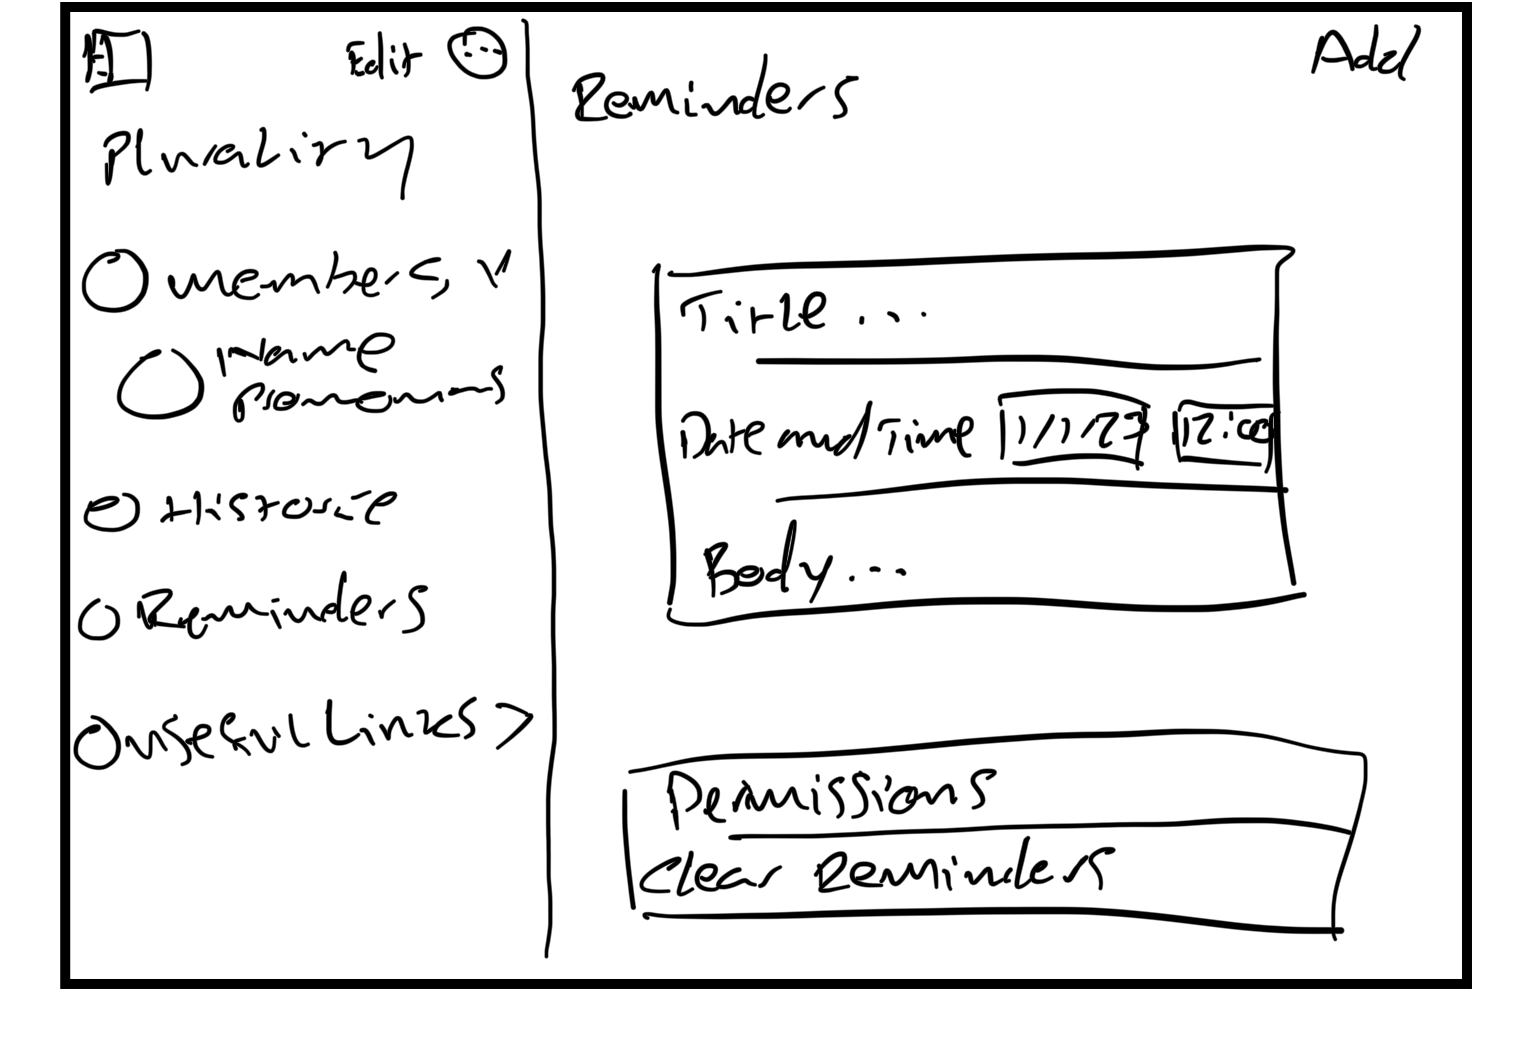 Edit
Plurality
members
Name
pronouns
Historie
Reminders
Useful Links >
Reminders
Add
Title ...
Date and Time 1/1/23 12:00
Body ...
Permissions
Clear Reminders